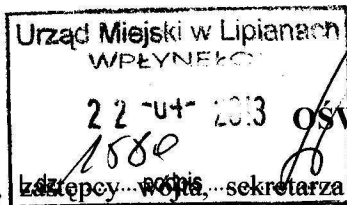 Urząd Miejski w Lipianach
WPŁYNĘŁO
22 -04- 2013 OŚW
1550
L.dz. podpis
zastępcy wójta, sekretarza